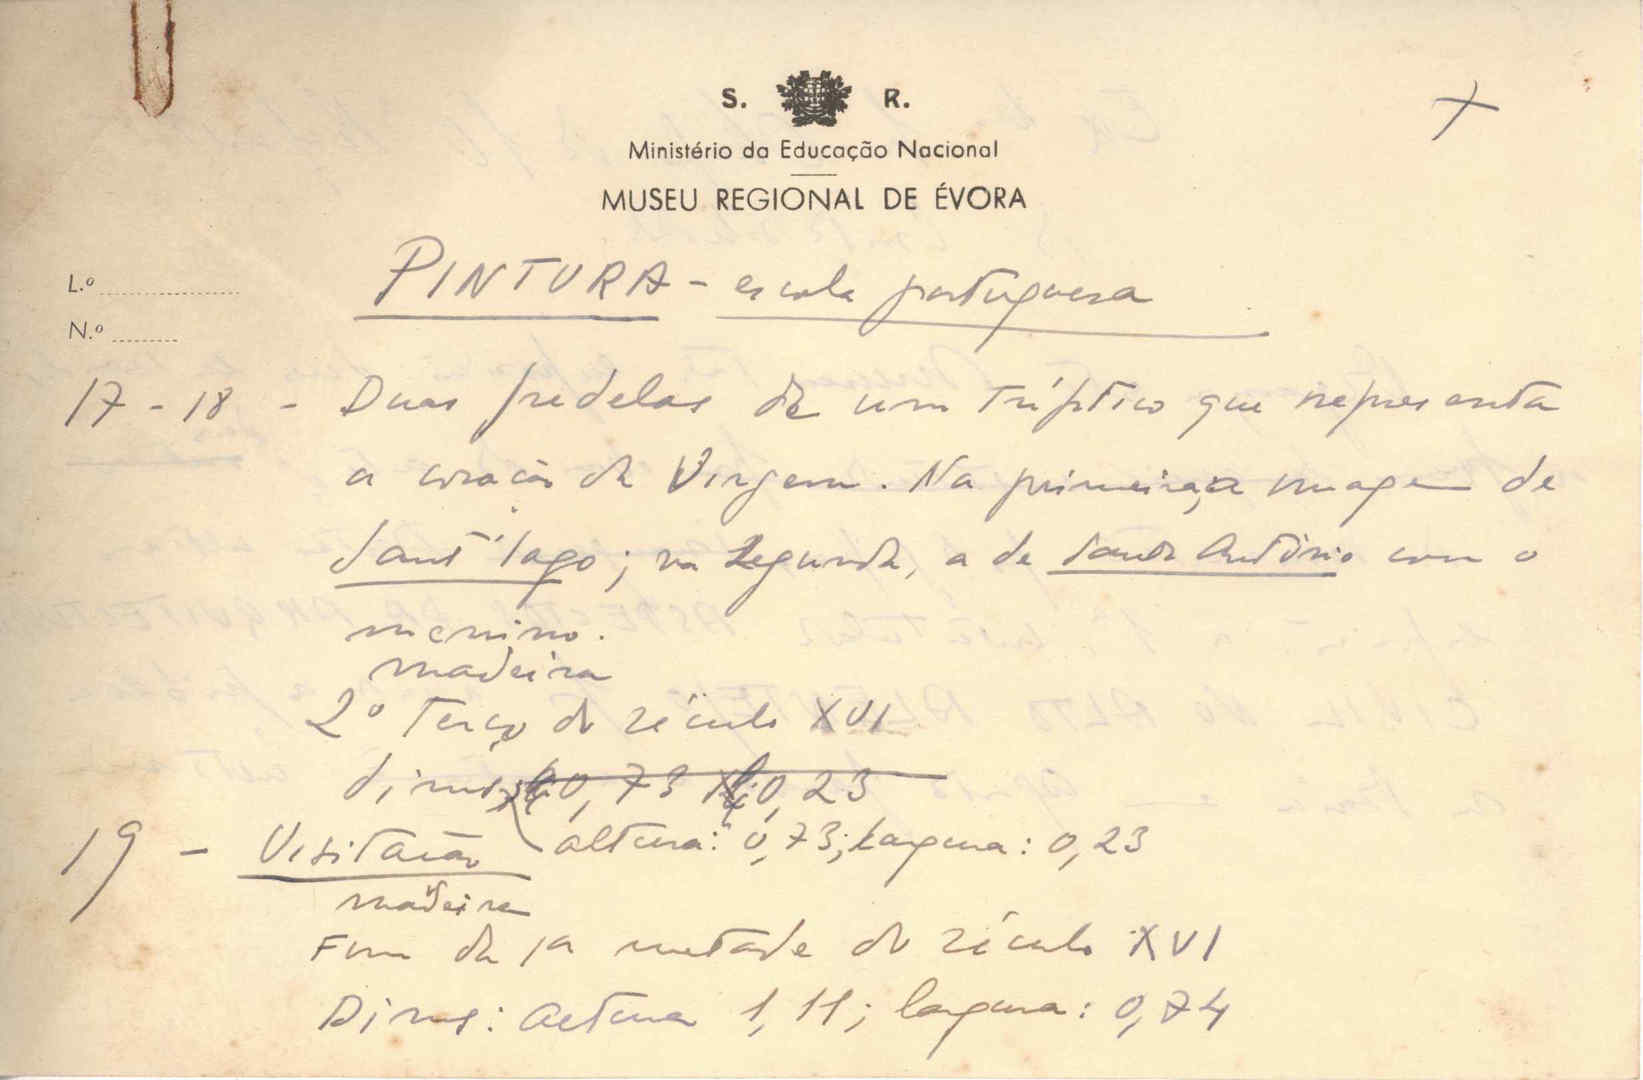 S. R.
Ministério da Educação Nacional
MUSEU REGIONAL DE ÉVORA
L.º
N.º
PINTURA - escola portuguesa
17 - 18 - Duas predelas de um tríptico que representa
a coroação da Virgem. Na primeira, a imagem de
Sant'Iago; na segunda, a de Santo António com o
menino.
madeira
2º terço do século XVI
dims 0,73 0,23
altura: 0,73; largura: 0,23
19 - Visitação
madeira
Fim da 1ª metade do século XVI
Dims: altura 1,11; largura: 0,74